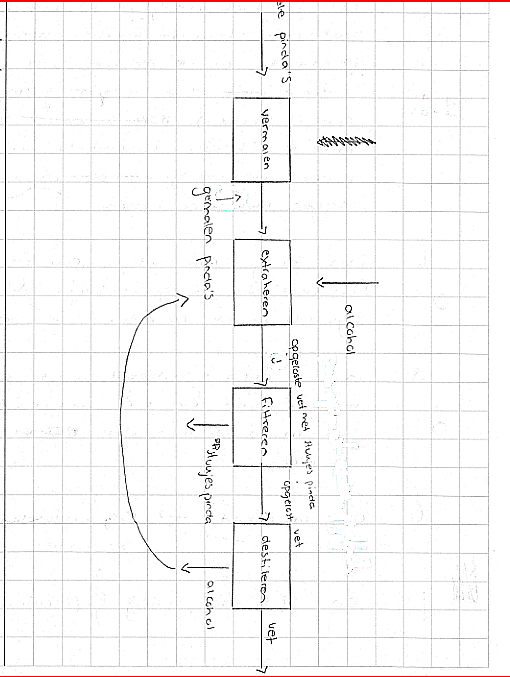 pinda's
vermalen
gemalen pinda's
extraheren
alcohol
opgeloste vet met stukjes pinda
filtreren
stukjes pinda
opgelost vet
destilleren
alcohol
vet